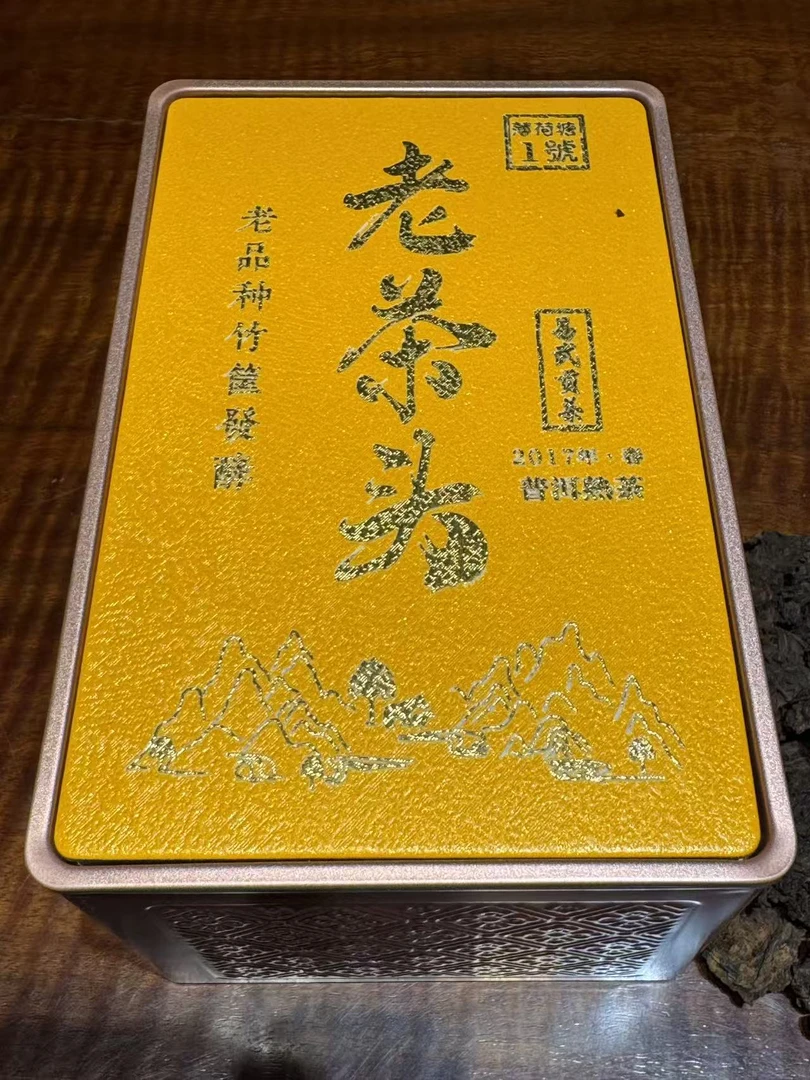 薄荷塘
1號
老茶头
易武貢茶
2017年·春
普洱熟茶
老品种竹筐發酵